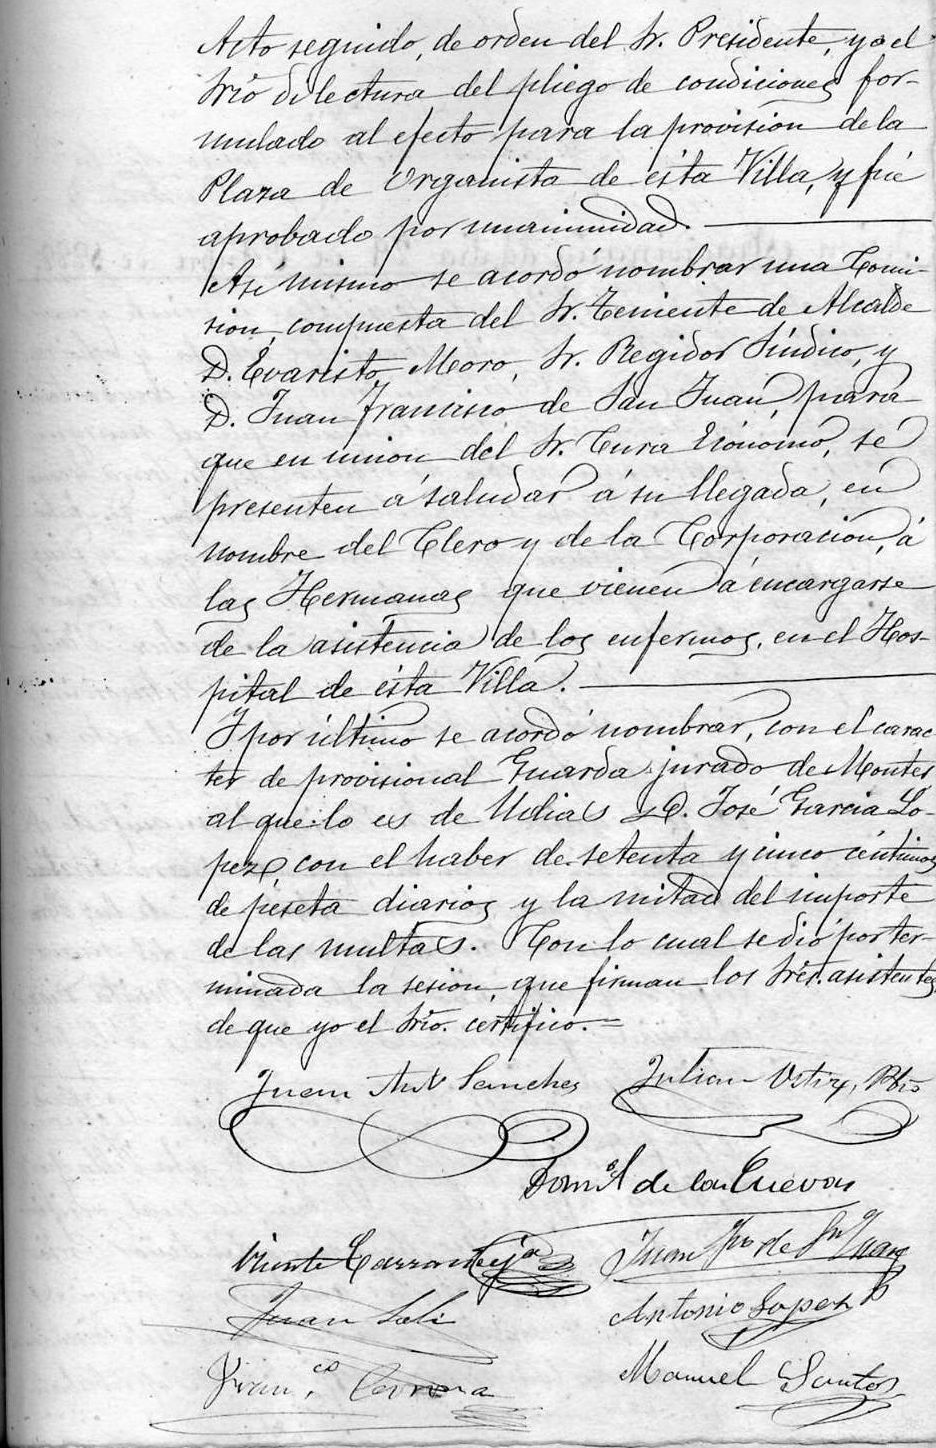 Acto seguido, de orden del Sr. Presidente, yo el
Srio di lectura del pliego de condiciones for-
mulado al efecto para la provision de la
Plaza de Organista de ésta Villa, y fué
aprobado por unanimidad.
Asi mismo se acordó nombrar una Comi-
sion, compuesta del Sr. Teniente de Alcalde
D. Evaristo Moro, Sr. Regidor Síndico, y
D. Juan Francisco de San Juan, para
que en union del Sr. Cura Ecónomo, se
presenten á saludar á su llegada, en
nombre del Clero y de la Corporacion, á
las Hermanas que vienen á encargarse
de la asistencia de los enfermos, en el Hos-
pital de ésta Villa.
Y por último se acordó nombrar, con el carac-
ter de provisional Guarda jurado de Montes
al que lo es de Udias D. José Garcia Lo-
pez, con el haber de setenta y cinco céntimos
de peseta diarios y la mitad del importe
de las multas. Con lo cual se dió por ter-
minada la sesion, que firman los Sres. asistentes,
de que yo el Srio. certifico.=
Juan Ant Sanches Julian Ortiz, Pbro
Dom.º S. de las Cuevas
Vicente Carranceja Juan Fco de Sn Juan
Juan Antonio Lopez
Fran.co Manuel Santos